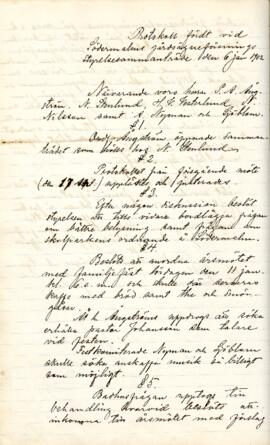 Protokoll fördt vid
Södermalms gårdsägareförenings
styrelsesammanträde den 6 jan 1902
Närvarande voro herrar L. A. Äng-
ström, N. Genlund, H. C. Vesterlund, N.
Nilsson samt Nyman och Sjöblom.
§ 1
Ordf. Ängström öppnade samman-
trädet som hölls hos N. Genlund.
§ 2
Protokollet från föregående möte
(den 17) upplästes och justerades
§ 3
Efter någon diskussion beslöt
styrelsen att tills vidare bordlägga frågan
om bättre belysning samt frågan om
skolparkens ordnande i Södermalm.
§ 4
Beslöts att anordna årsmötet
med familjefäst lördagen den 11 jan.
kl. 6 e.m. och skulle där serveras
kaffe med bröd samt the och smör-
gåsar
At h. Ängström uppdrogs att söka
erhålla pastor Johansson som talare
vid festen.
Festkomiterade Nyman och Sjöblom
skulle söka anskaffa musik så billigt
som möjligt.
§ 5
Badhusfrågan upptogs till
behandling hvarvid beslöts att
inkomma till årsmötet med förslag